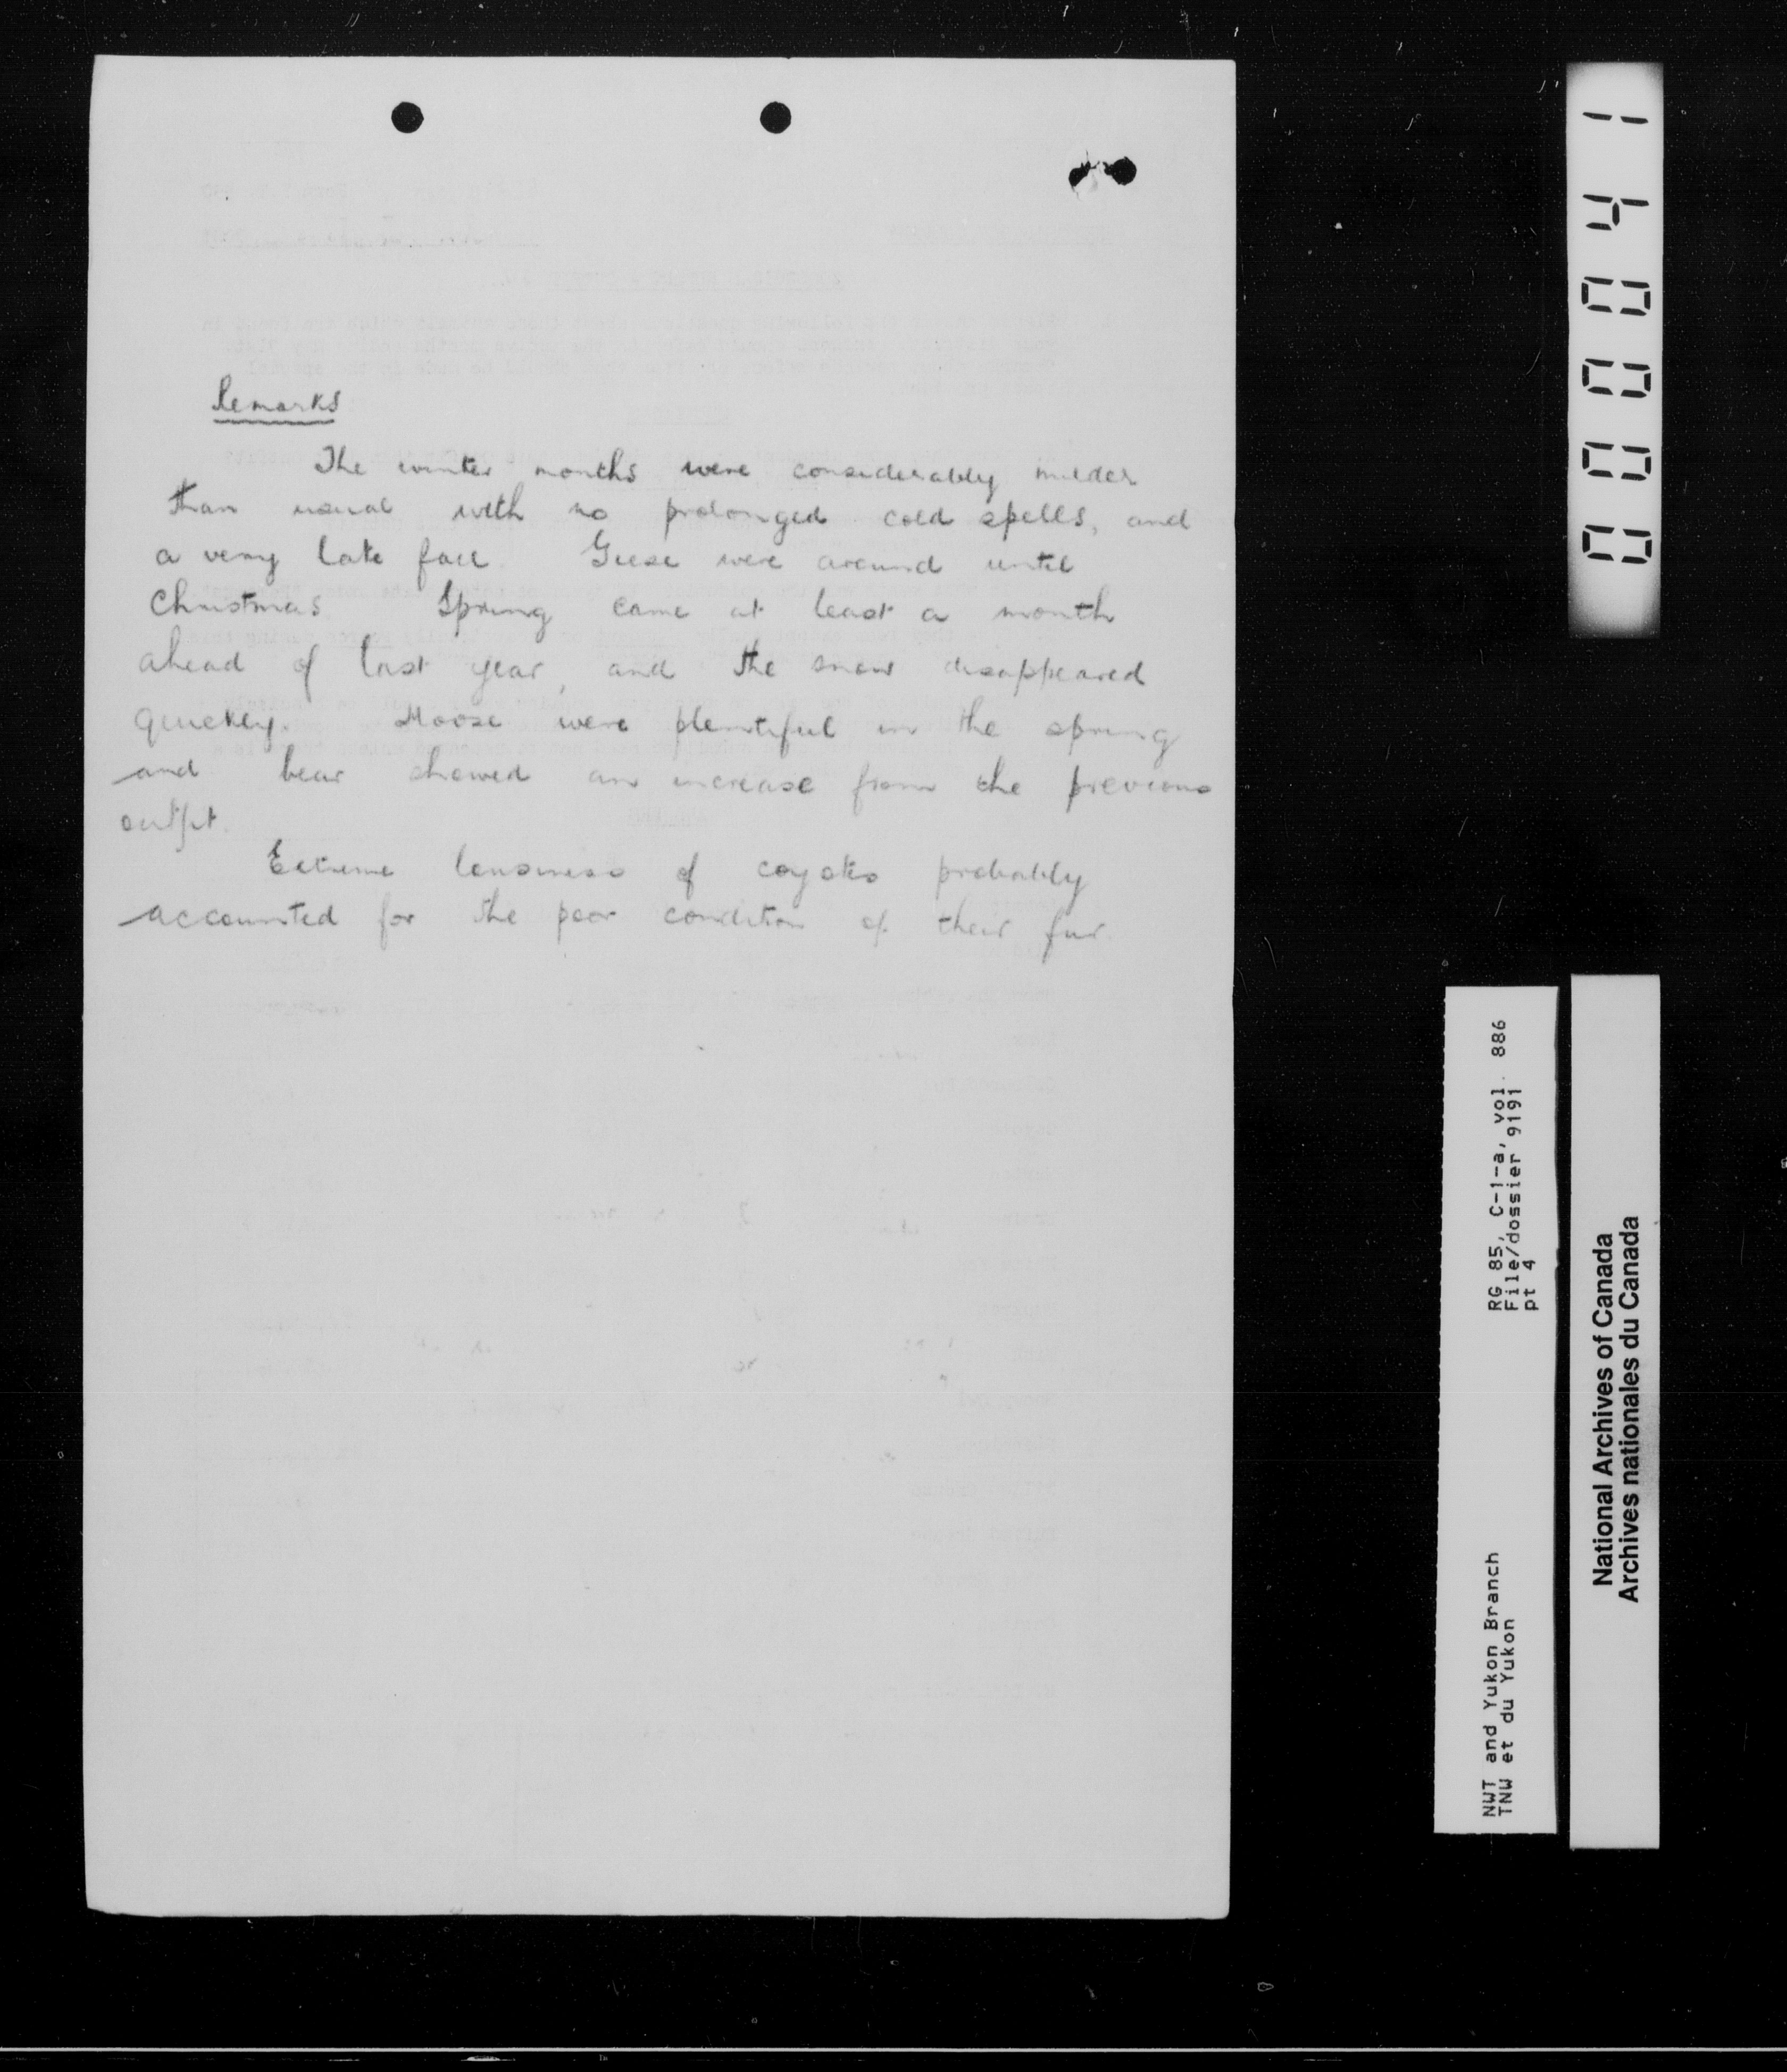 Remarks
The winter months were considerably milder
than usual with no prolonged cold spells, and
a very late fall. Geese were around until
Christmas. Spring came at least a month
ahead of last year, and the snow disappeared
quickly. Moose were plentiful in the spring
and bear showed an increase from the previous
outfit.
Extreme lousiness of coyotes probably
accounted for the poor condition of their fur.
000041
RG 85, C-1-a, vol. 886
File/dossier 9191
pt 4
NWT and Yukon Branch
TNW et du Yukon
National Archives of Canada
Archives nationales du Canada